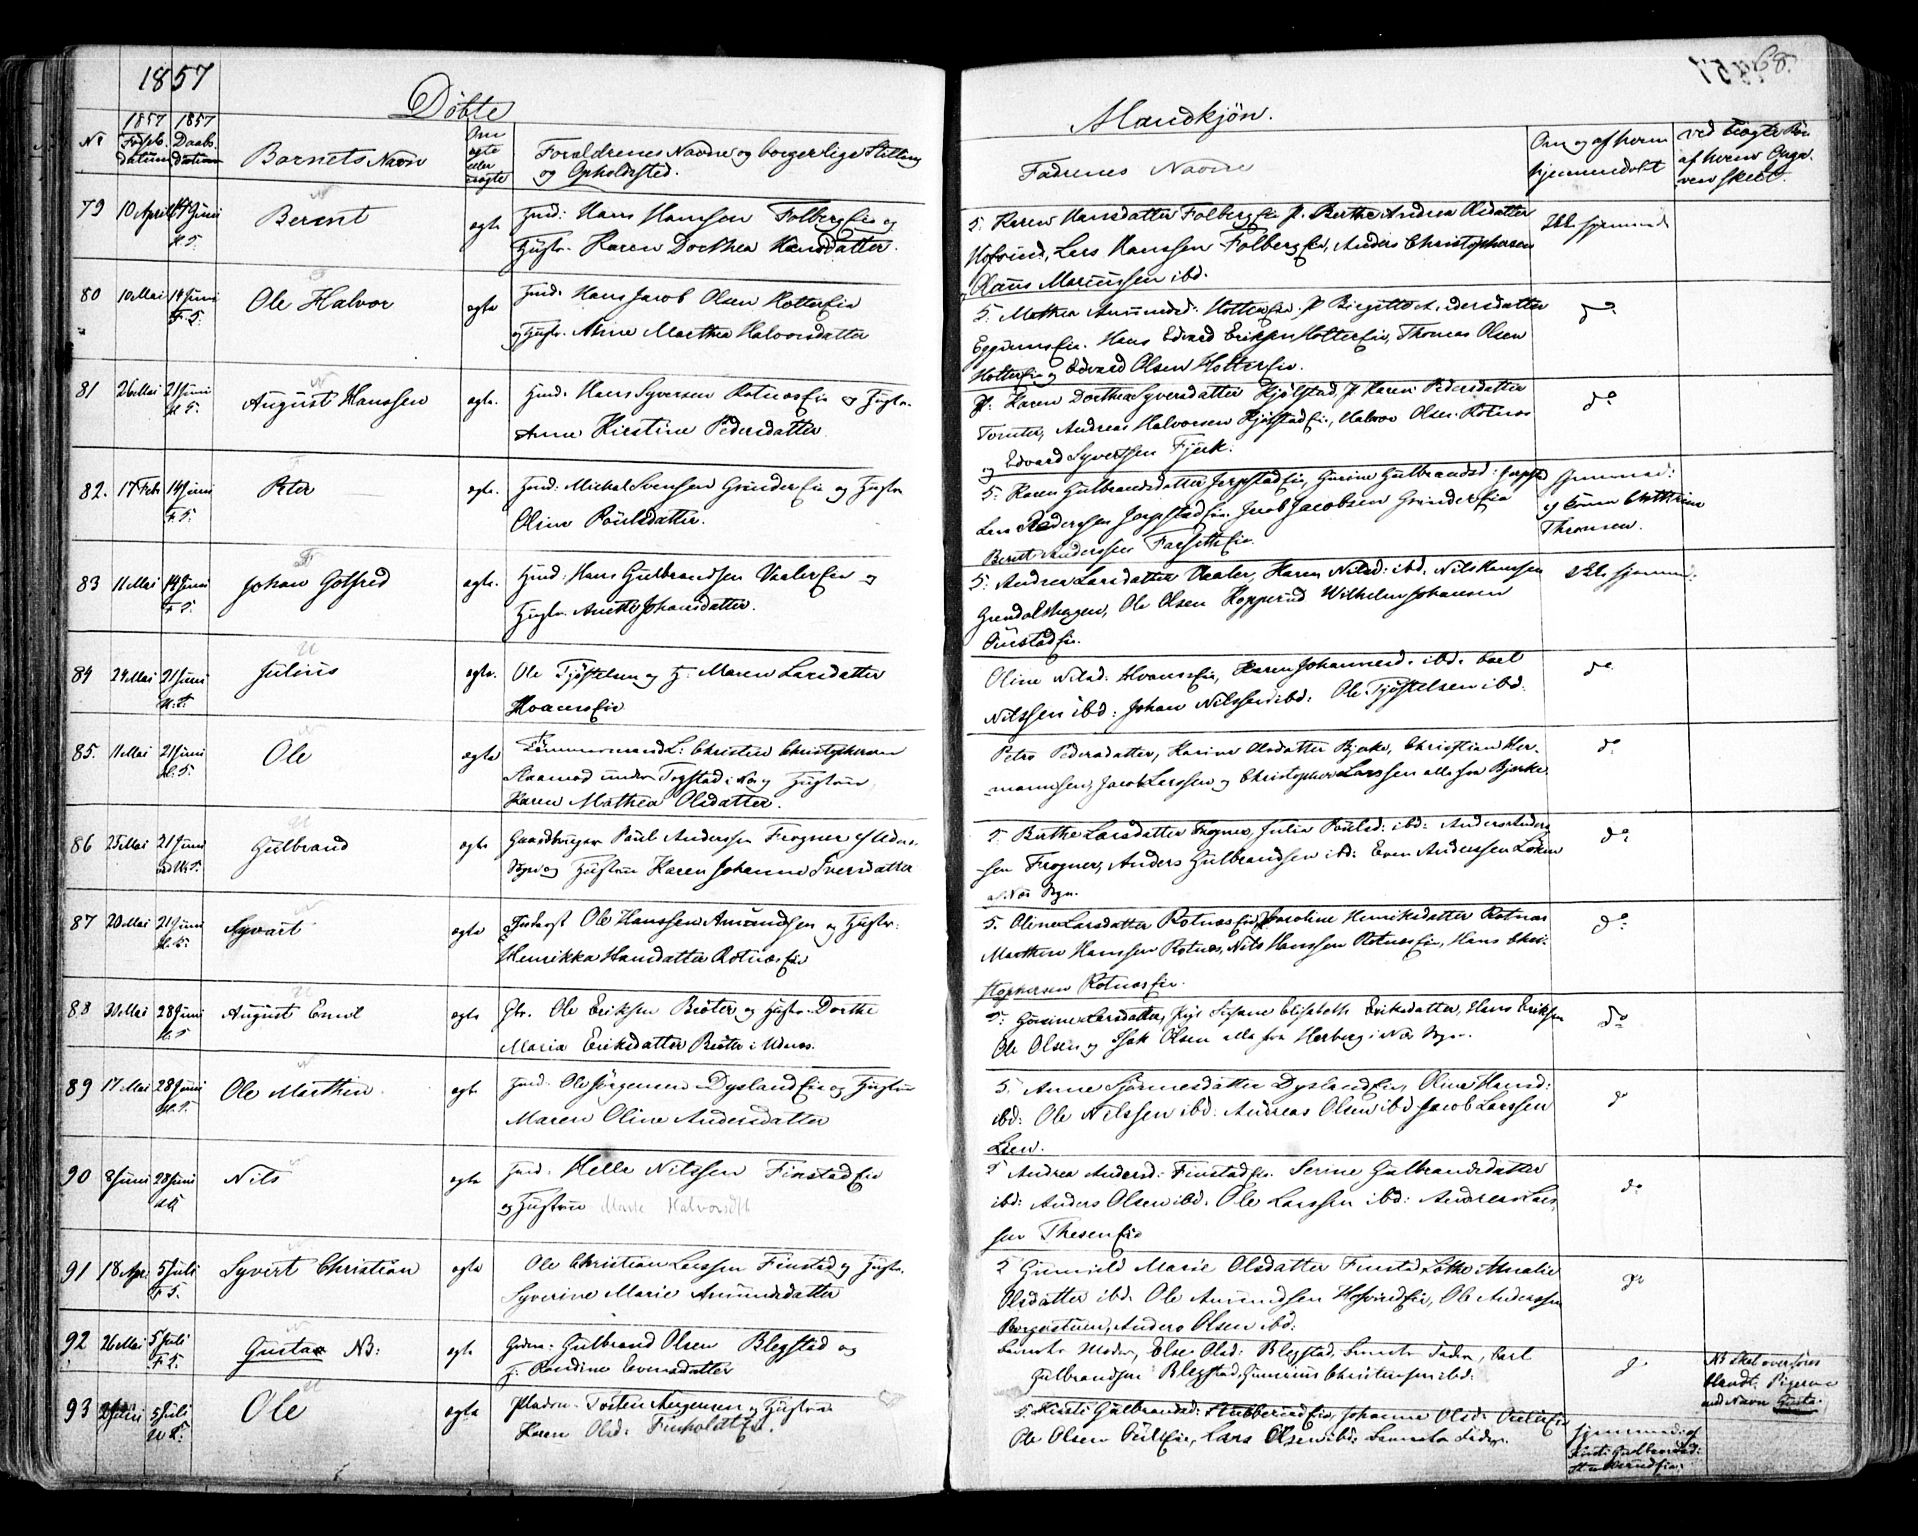 1857
Döbte
Mandkjön.
68.
No
1857 Födsels datum
1857 Daabs datum
Barnets Navn
Om ægte eller uægte
Forældrenes Navne og borgerlige Stilling
og Opholdssted.
Faddrenes Navne
Om og af hvem
hjemmedöbt
79 10 April 14 Juni Bernt ægte Huusm: Hans Hansen Folberg Eie og
Hustr. Karen Dorthea Hansdatter.
Karen Hansdatter Folberg Eie P. Berthe Andrea Olsdatter
Hofvind, Lars Hanssen Folberg Eie, Anders Christophersen
Claus Mariussen ibd.
Ikke hjemmed
80 10 Mai 14 Juni F. K. Ole Halvor ægte Huusm: Hans Jacob Olsen Holter Eie
og Hustr. Anne Marthea Halvorsdatter
Mathea Amundsd: Holter Eie. P Birgitte Pedersdatter
Eggums Eie. Hans Edvard Eriksen Holter Eie, Thomas Olsen
Holter Eie og Edvard Olsen Holter Eie.
do
81 26 Mai 21 Juni August Hanssen ægte. Huusm: Hans Syversen Rotnæs Eie og Hustr.
Anne Kirstine Pedersdatter
P: Karen Dorthea Syversdatter Kjölstad, P. Karen Pedersdatter
Tomter, Andreas Halvorsen Kjölstad Eie, Halvor Olsen Rotnæs
og Edvard Syvertsen Fjerk.
do
82. 17 Feb 14 Juni Peter ægte. Huusm: Mickel Svensen Grinder Eie og Hustr
Oline Poulsdatter.
Karen Gulbrandsdatter Jerpstad Eie, Gurine Gulbrandsd: Jerpst
Lars Pederssen Jerpstad Eie. Jacob Jacobsen Grinder Eie
Bernt Anderssen Farseth Eie.
hjemmed:
af Anne Cathrine
Thomsen.
83 11 Mai 14 Juni Johan Gotfred ægte. Huusm: Hans Gulbrandsen Vaaler Eie og
Hustr. Anette Johansdatter.
Andrea Larsdatter Vaaler, Karen Nilsd: ibd. Nils Hanssen
Grendalshagen, Ole Olsen Kopperud Wilhelm Johansen
Onstad Eie.
Ikke hjemmed:
84 24 Mai 21 Juni Julius ægte. Ole Tjöstelsen og H: Maren Larsdatter
Hvams Eie
Oline Nilsd: Hvams Eie, Karen Johannesd. ibd. Carl
Nilssen ibd: Johan Nilssen ibd: Ole Tjöstelsen ibd.
do
85. 11 Mai 21 Juni Ole ægte Tömmermand L: Christen Christophersen
under Togstad i Næs og Hustrue,
Karen Mathea Olsdatter.
Petra Pedersdatter, Karine Olsdatter Bjerke, Christian Her-
mannsen, Jacob Larssen og Christopher Larssen alle fra Bjerke.
do
86 25 Mai 21 Juni Gulbrand ægte Gaardbruger Paul Anderssen Frogner af Udnæs
Sogn og Hustrue Karen Johanne Iversdatter
Birthe Larsdatter Frogner, Julia Poulsd: ibd: Anders Anders
sen Frogner, Anders Gulbrandsen ibd: Even Anderssen Löken
i Næs Sogn.
do
87 20 Mai 21 Juni Syvert ægte Inderst Ole Hanssen Amundsen og Hustr:
Henrikka Hansdatter Rotnæs Eie
Oline Larsdatter Rotnæs Eie, P. Karoline Henriksdatter Rotnæs
Marthin Hanssen Rotnæs, Nils Hanssen Rotnæs Eie, Hans Chri-
stophersen Rotnæs Eie.
do:
88 Mai 28 Juni August Emil ægte Gbr. Ole Eriksen Bröter og Hustr. Dorthe
Maria Eriksdatter Bröter i Udnæs.
Gurine Larsdatter, Pige Susanne Elisabeth Eriksdatter, Hans Eriksen
Ole Olsen og Isak Olsen alle fra Herberg i Næs Sogn.
do
89 17 Mai 28 Juni Ole Marthin. ægte Huusm: Ole Jörgensen Dysland Eie og Hustrue
Maren Oline Andersdatter
Anne Simensdatter Dysland Eie, Oline Hansd:
ibd: Ole Nilssen ibd: Andreas Olsen ibd Jacob Larssen
Lien.
do
90 8 Juni 28 Juni Nils ægte Huusm: Helle Nilssen Finstad Eie
og Hustrue Marte Halvorsdtr
Andrea Andersd: Finstad Eie. Serine Gulbrandsdatter
ibd: Anders Olsen ibd. Ole Larssen ibd: Andreas Lars
sen Thesen Eie
do
91 18 Apr 5 Juli Syvert Christian ægte Ole Christian Larssen Finstad og Hustr.
Syverine Marie Amundsdatter
Gunnild Marie Olsdatter Finstad Lothe Amalie
Olsdatter ibd. Ole Amundsen Hofvind Eie, Ole Anderssen
Borgestuen, Anders Olsen ibd:
do
92 26 Mai 5 Juli Gustav NB: ægte Gulbrand Olsen Blegstad og
H. Randine Evensdatter
Barnets Moder, Else Olsd: Blegstad Barnets Fader, Carl
Gulbrandsen Blegstad, Gunerius Christensen ibd:
do
NB skal overföres
blandt Pigerne
med Navn Gusta.
93 5 Juli Ole ægte Pladsm. Torsten Aurgensen og Hustrue
Karen Olsd: Finholdt Eie.
Kirsti Gulbrandsd: Stubberud Eie, Johanne Olsd: Ouli Eie
Ole Olsen Ouli Eie, Lars Olsen ibd: Barnets Fader.
hjemmed: af
Kirsti Gulbrandsd:
Stubberud Eie: